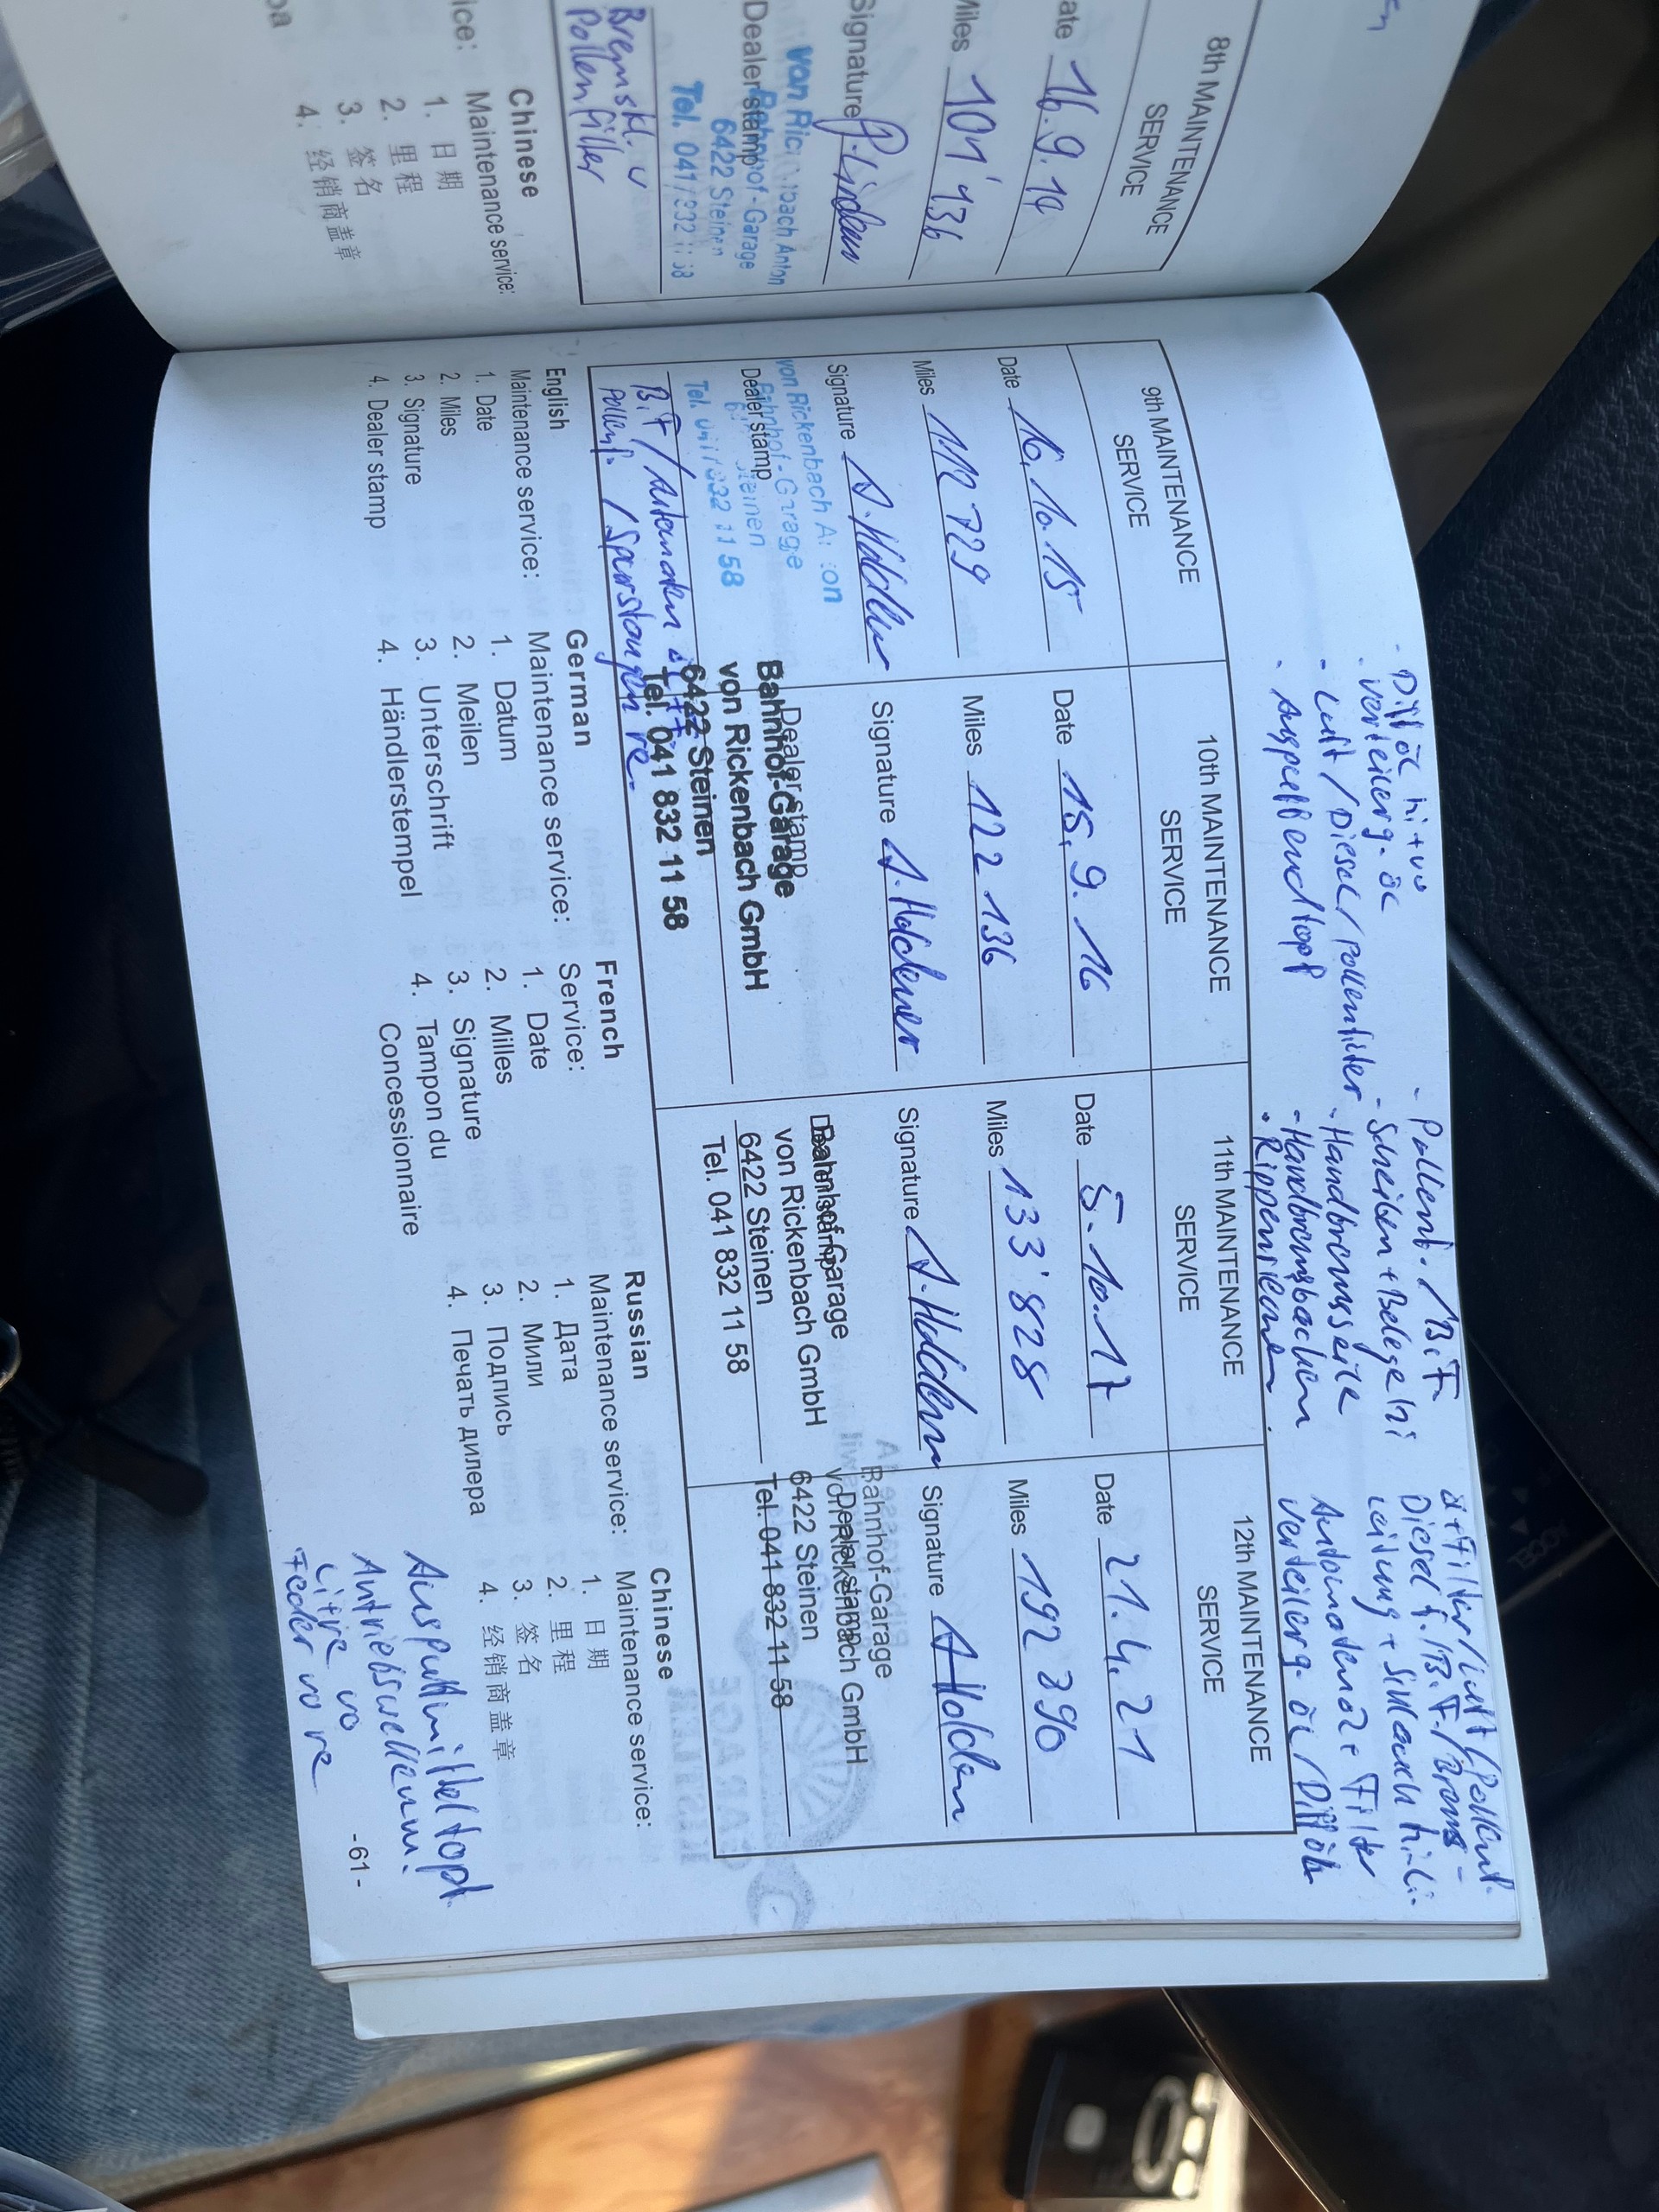 8th MAINTENANCE
SERVICE
Date 16.9.14
Miles 101'136
Signature
von Rickenbach Anton
Dealer stamp
Bahnhof-Garage
6422 Steinen
Tel. 041/832 11 58
Bremskl. v
Pollenfilter
Chinese
Maintenance service:
1. 日期
2. 里程
3. 签名
4. 经销商盖章
- Difföl hi + vo
- Verteilerg. öl
- Luft / Diesel / Pollenfilter
- Auspuffendtopf
- Pollenf. / B.F.
- Scheiben + Belege hi
- Handbremsseile
- Handbremsbacken
- Rippenriemen
Öl + Filter / Luft / Pollenf.
Diesel f. / B.F. / Brems-
leitung + Schlauch hi. li.
Automatenöl + Filter
Verteilerg. öl / Diff öl
9th MAINTENANCE
SERVICE
Date 16.10.15
Miles 112 729
Signature A. Holdener
von Rickenbach Anton
Dealer stamp
Bahnhof-Garage
6422 Steinen
Tel. 041/832 11 58
B.F / Automaten
Pollenf. / Spurstangen re.
10th MAINTENANCE
SERVICE
Date 15.9.16
Miles 122 136
Signature A. Holdener
Dealer stamp
Bahnhof-Garage
von Rickenbach GmbH
6422 Steinen
Tel. 041 832 11 58
11th MAINTENANCE
SERVICE
Date 5.10.17
Miles 133'828
Signature A. Holdener
Dealer stamp
Bahnhof-Garage
von Rickenbach GmbH
6422 Steinen
Tel. 041 832 11 58
12th MAINTENANCE
SERVICE
Date 21.4.21
Miles 192 390
Signature A Holdener
Dealer stamp
Bahnhof-Garage
von Rickenbach GmbH
6422 Steinen
Tel. 041 832 11 58
English
Maintenance service:
1. Date
2. Miles
3. Signature
4. Dealer stamp
German
Maintenance service:
1. Datum
2. Meilen
3. Unterschrift
4. Händlerstempel
French
Service:
1. Date
2. Milles
3. Signature
4. Tampon du
Concessionnaire
Russian
Maintenance service:
1. Дата
2. Мили
3. Подпись
4. Печать дилера
Chinese
Maintenance service:
1. 日期
2. 里程
3. 签名
4. 经销商盖章
Auspuffmitteltopf
Antriebswellenm.
li + re vo
Feder vo re
-61-